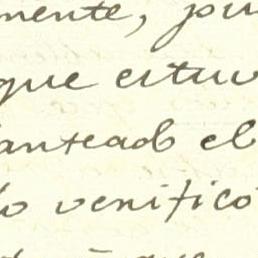 mente, pu
que estuv
anteado el
lo verificó